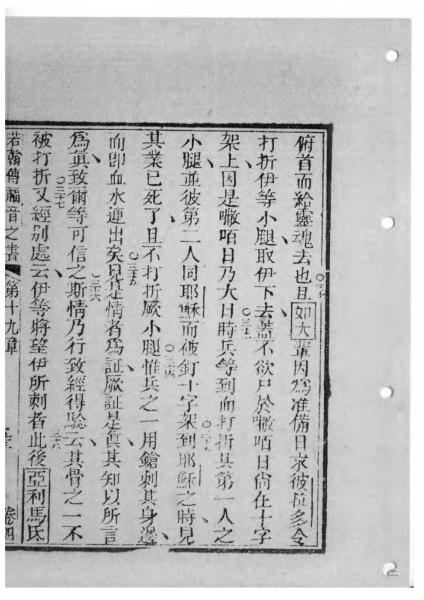 俯首而給靈魂去也且如大軰因爲准備日求彼拉多令
打折伊等小腿取伊下去蓋不欲尸於㘔咟日尚在十字
架上因是㘔咟日乃大日時兵等到而打折其第一人之
小腿並彼第二人同耶穌而被釘十字架到耶穌之時見
其業已死了且不打折厥小腿惟兵之一用鎗刺其身邊
而即血水運出矣見是情者爲証厥証是眞其知以所言
爲眞致爾等可信之斯情乃行致經得驗云其骨之一不
被打折又經別處云伊等將望伊所刺者此後亞利馬氐
若翰傳福音之書 第十九章 卷四